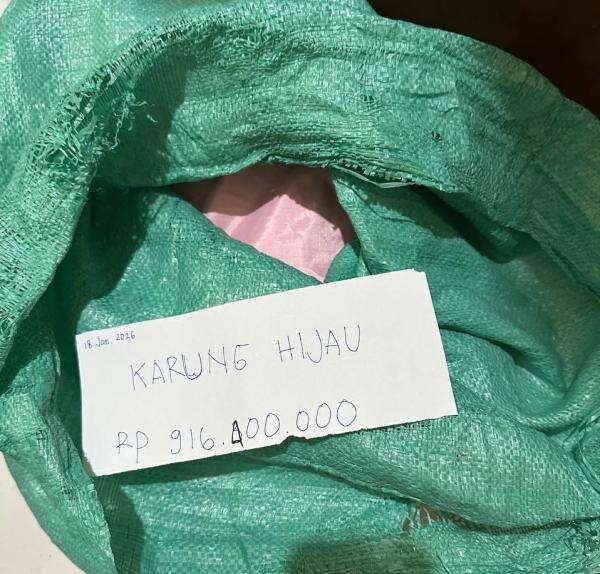 18 Jan 2026
KARUNG HIJAU
RP 916.400.000